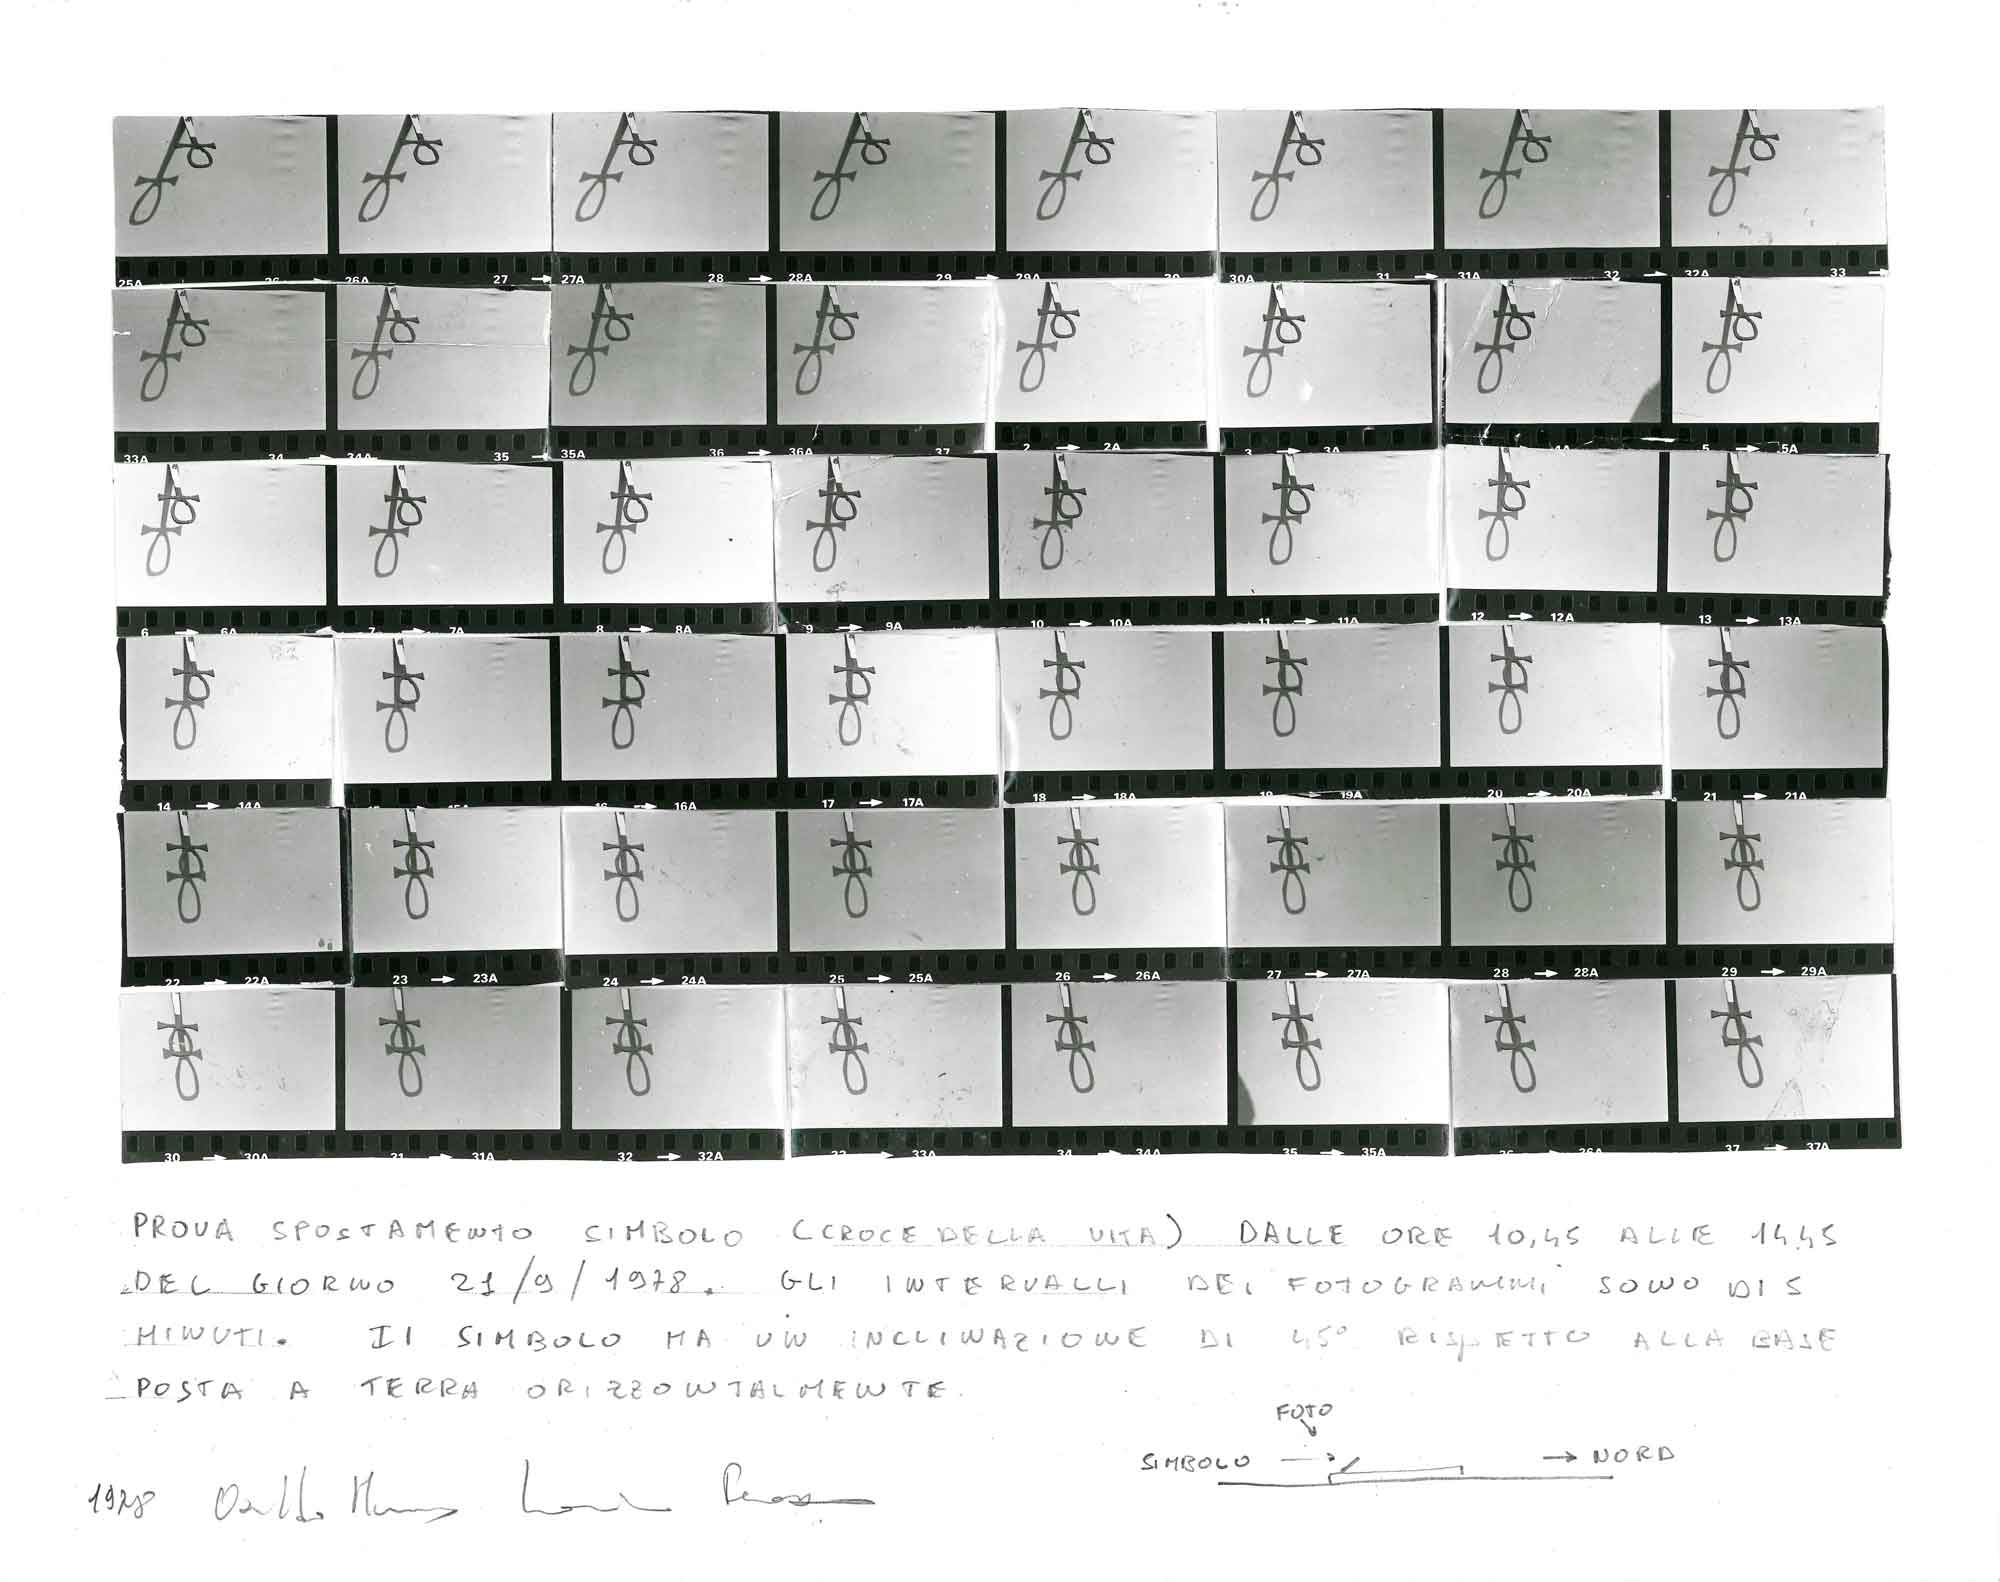 25A 26 26A 27 27A 28 28A 29 29A 30 30A 31 31A 32 32A 33
33A 34 34A 35 35A 36 36A 37 2 2A 3 3A 4A 5 5A
6 6A 7 7A 8 8A 9 9A 10 10A 11 11A 12 12A 13 13A
14 14A 15 15A 16 16A 17 17A 18 18A 19 19A 20 20A 21 21A
22 22A 23 23A 24 24A 25 25A 26 26A 27 27A 28 28A 29 29A
30 30A 31 31A 32 32A 33 33A 34 34A 35 35A 36 36A 37 37A
PROVA SPOSTAMENTO SIMBOLO (CROCE DELLA VITA) DALLE ORE 10,45 ALLE 14,45
DEL GIORNO 21/9/1978. GLI INTERVALLI DEI FOTOGRAMMI SONO DI 5
MINUTI. Il SIMBOLO HA UN INCLINAZIONE DI 45° RISPETTO ALLA BASE
POSTA A TERRA ORIZZONTALMENTE.
FOTO
SIMBOLO → NORD
1978